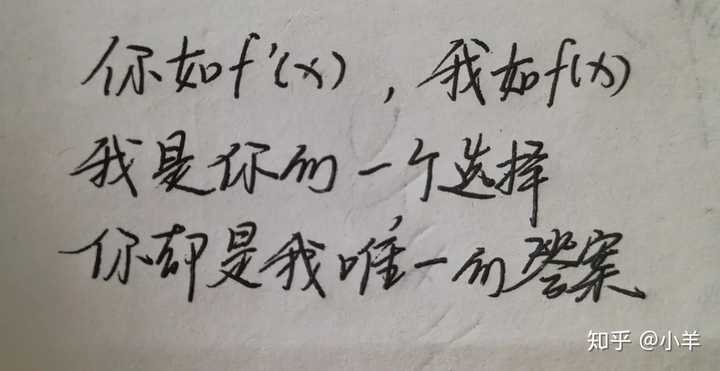 你如f'(x)，我如f(x)
我是你的一个选择
你却是我唯一的答案
知乎 @小羊